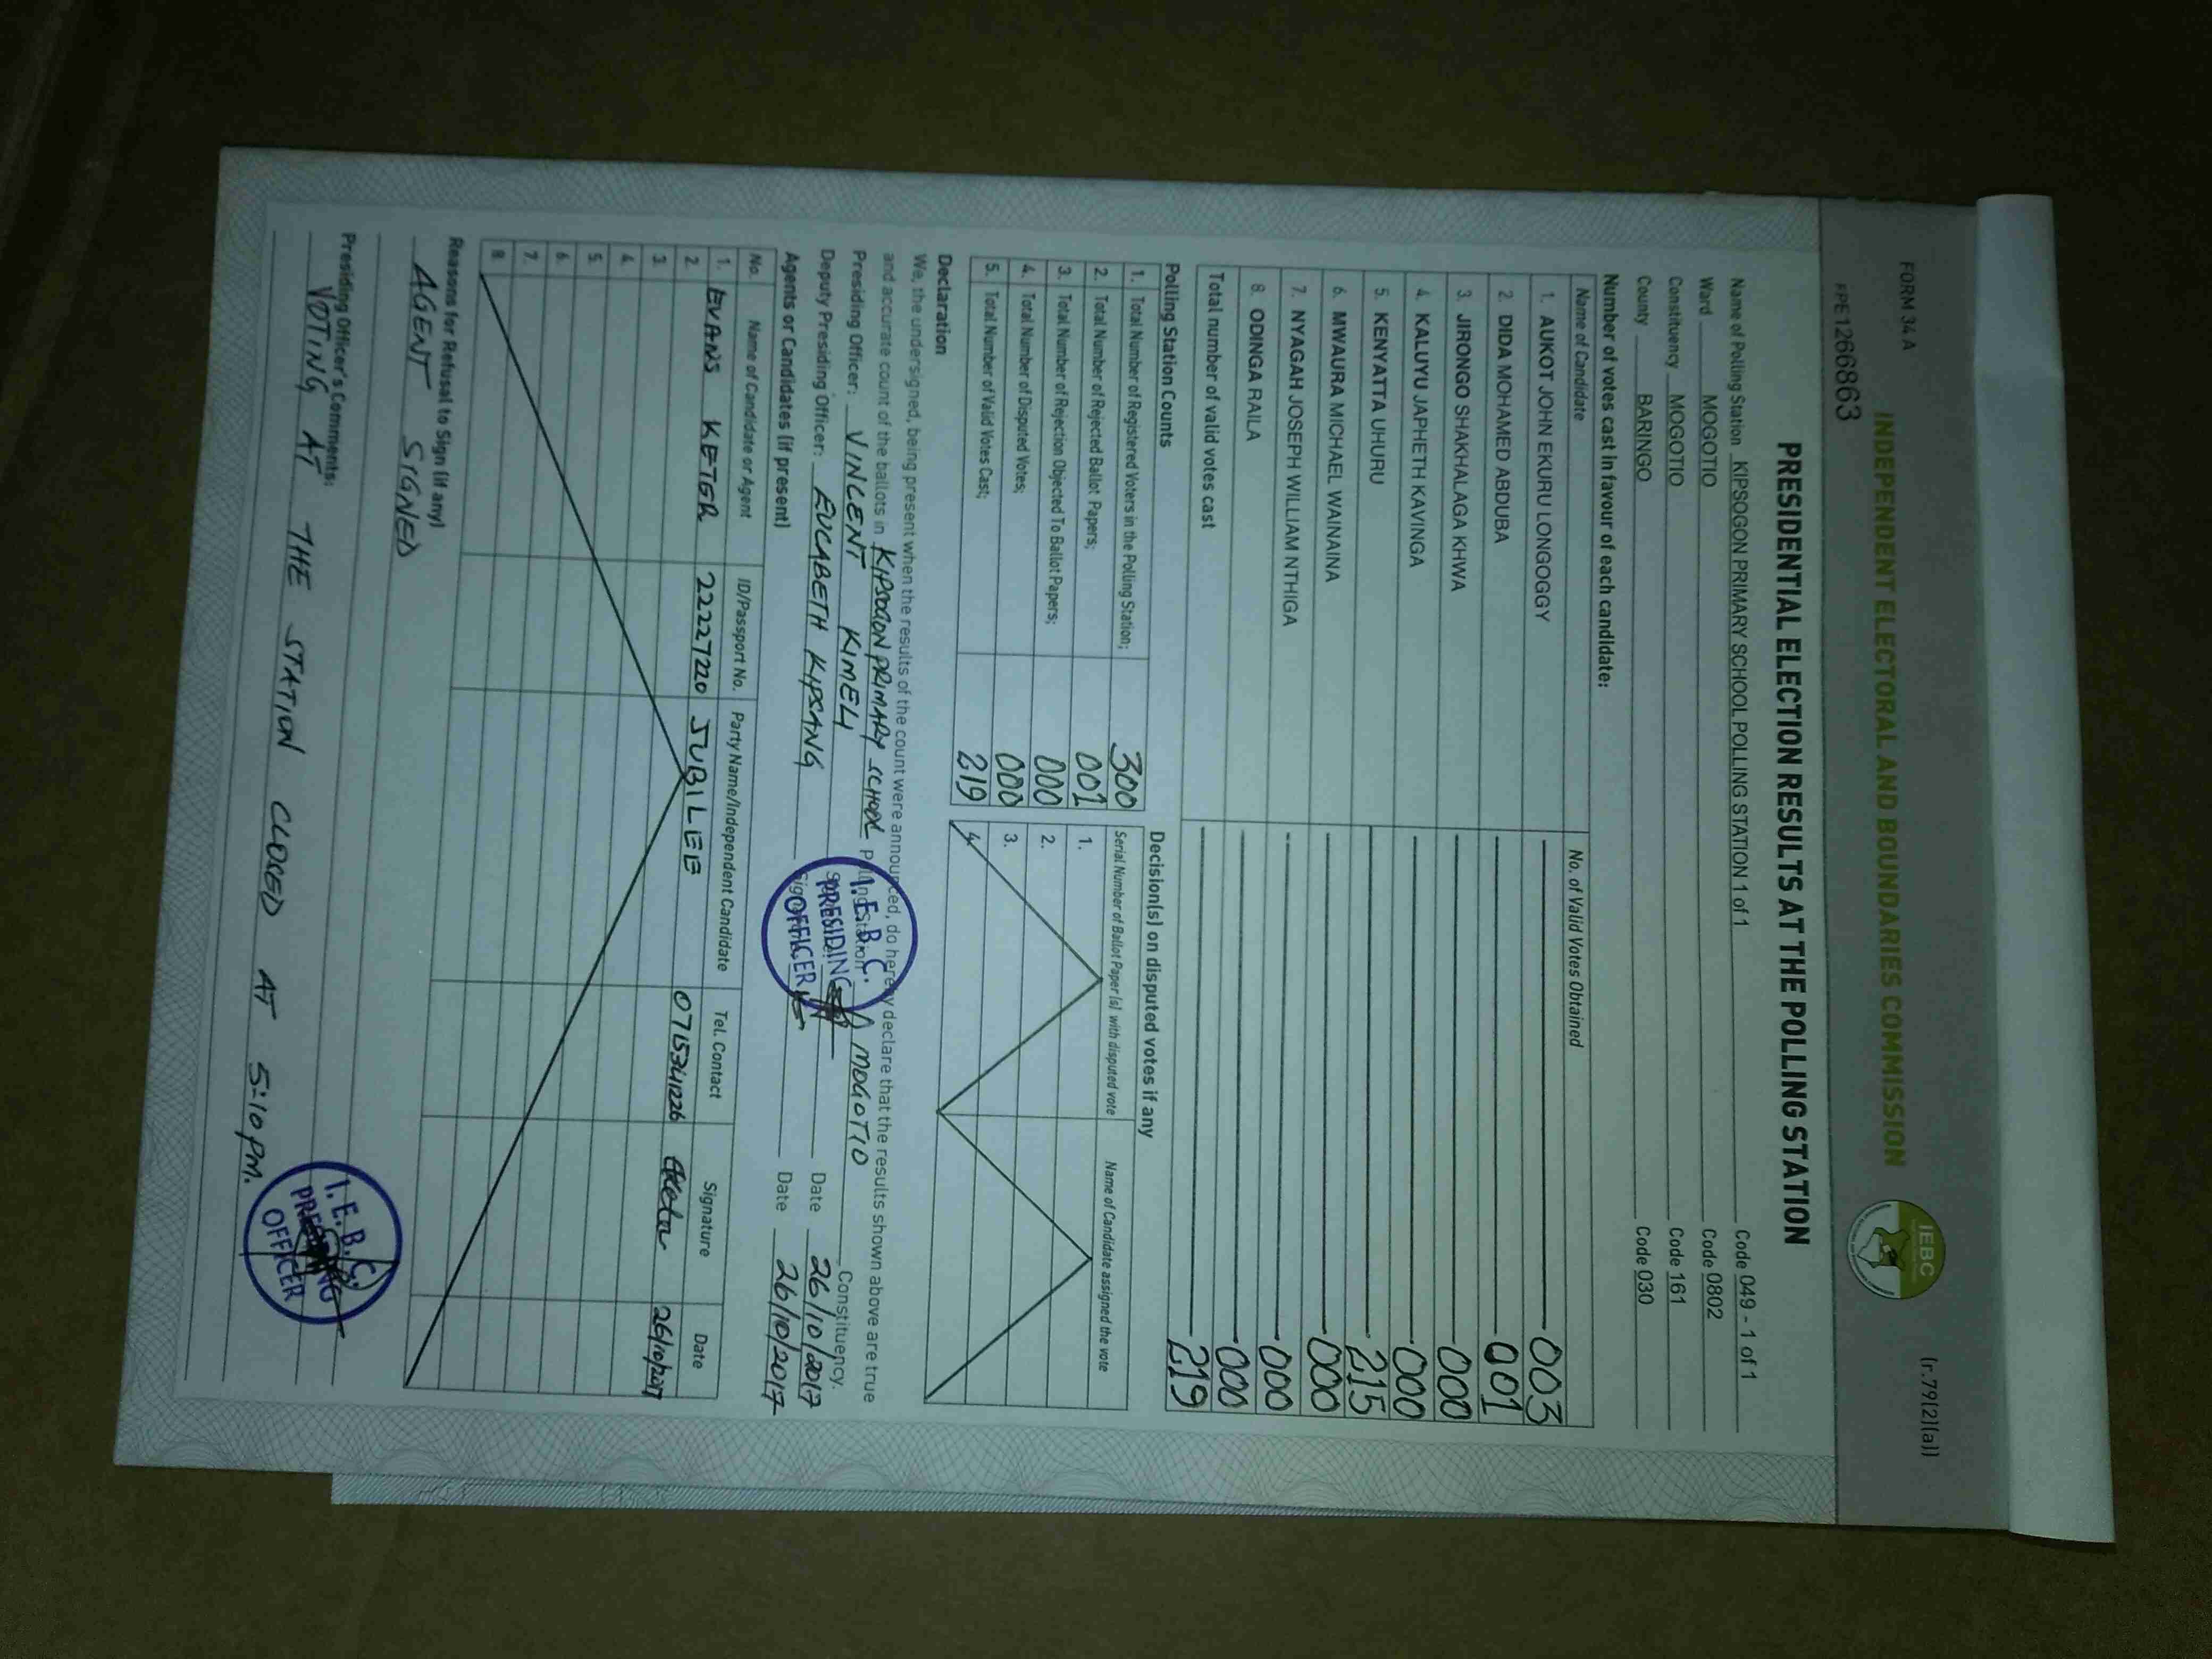 FORM 34A
(r.79(2)(a))
INDEPENDENT ELECTORAL AND BOUNDARIES COMMISSION
IEBC
FPE1266863
PRESIDENTIAL ELECTION RESULTS AT THE POLLING STATION
Name of Polling Station KIPSOGON PRIMARY SCHOOL POLLING STATION 1 of 1 Code 049 - 1 of 1
Ward MOGOTIO Code 0802
Constituency MOGOTIO Code 161
County BARINGO Code 030
Number of votes cast in favour of each candidate:
Name of Candidate No. of Valid Votes Obtained
1. AUKOT JOHN EKURU LONGOGGY 003
2. DIDA MOHAMED ABDUBA 001
3. JIRONGO SHAKHALAGA KHWA 000
4. KALUYU JAPHETH KAVINGA 000
5. KENYATTA UHURU 215
6. MWAURA MICHAEL WAINAINA 000
7. NYAGAH JOSEPH WILLIAM NTHIGA 000
8. ODINGA RAILA 000
Total number of valid votes cast 219
Polling Station Counts
1. Total Number of Registered Voters in the Polling Station; 300
2. Total Number of Rejected Ballot Papers; 001
3. Total Number of Rejection Objected To Ballot Papers; 000
4. Total Number of Disputed Votes; 000
5. Total Number of Valid Votes Cast; 219
Decision(s) on disputed votes if any
Serial Number of Ballot Paper (s) with disputed vote Name of Candidate assigned the vote
1.
2.
3.
4.
Declaration
We, the undersigned, being present when the results of the count were announced, do hereby declare that the results shown above are true
and accurate count of the ballots in KIPSOGON PRIMARY SCHOOL Polling station MOGOTIO Constituency.
Presiding Officer: VINCENT KIMELI Date 26/10/2017
Deputy Presiding Officer: EUCABETH KIPSANG Date 26/10/2017
I.E.B.C.
PRESIDING
OFFICER
Agents or Candidates (if present)
No. Name of Candidate or Agent ID/Passport No. Party Name/Independent Candidate Tel. Contact Signature Date
1. EVANS KETER 22227220 JUBILEE 0715341226 26/10/2017
2.
3.
4.
5.
6.
7.
8.
Reasons for Refusal to Sign (if any)
AGENT SIGNED
Presiding Officer's Comments:
VOTING AT THE STATION CLOSED AT 5:10 PM.
I.E.B.C.
PRESIDING
OFFICER